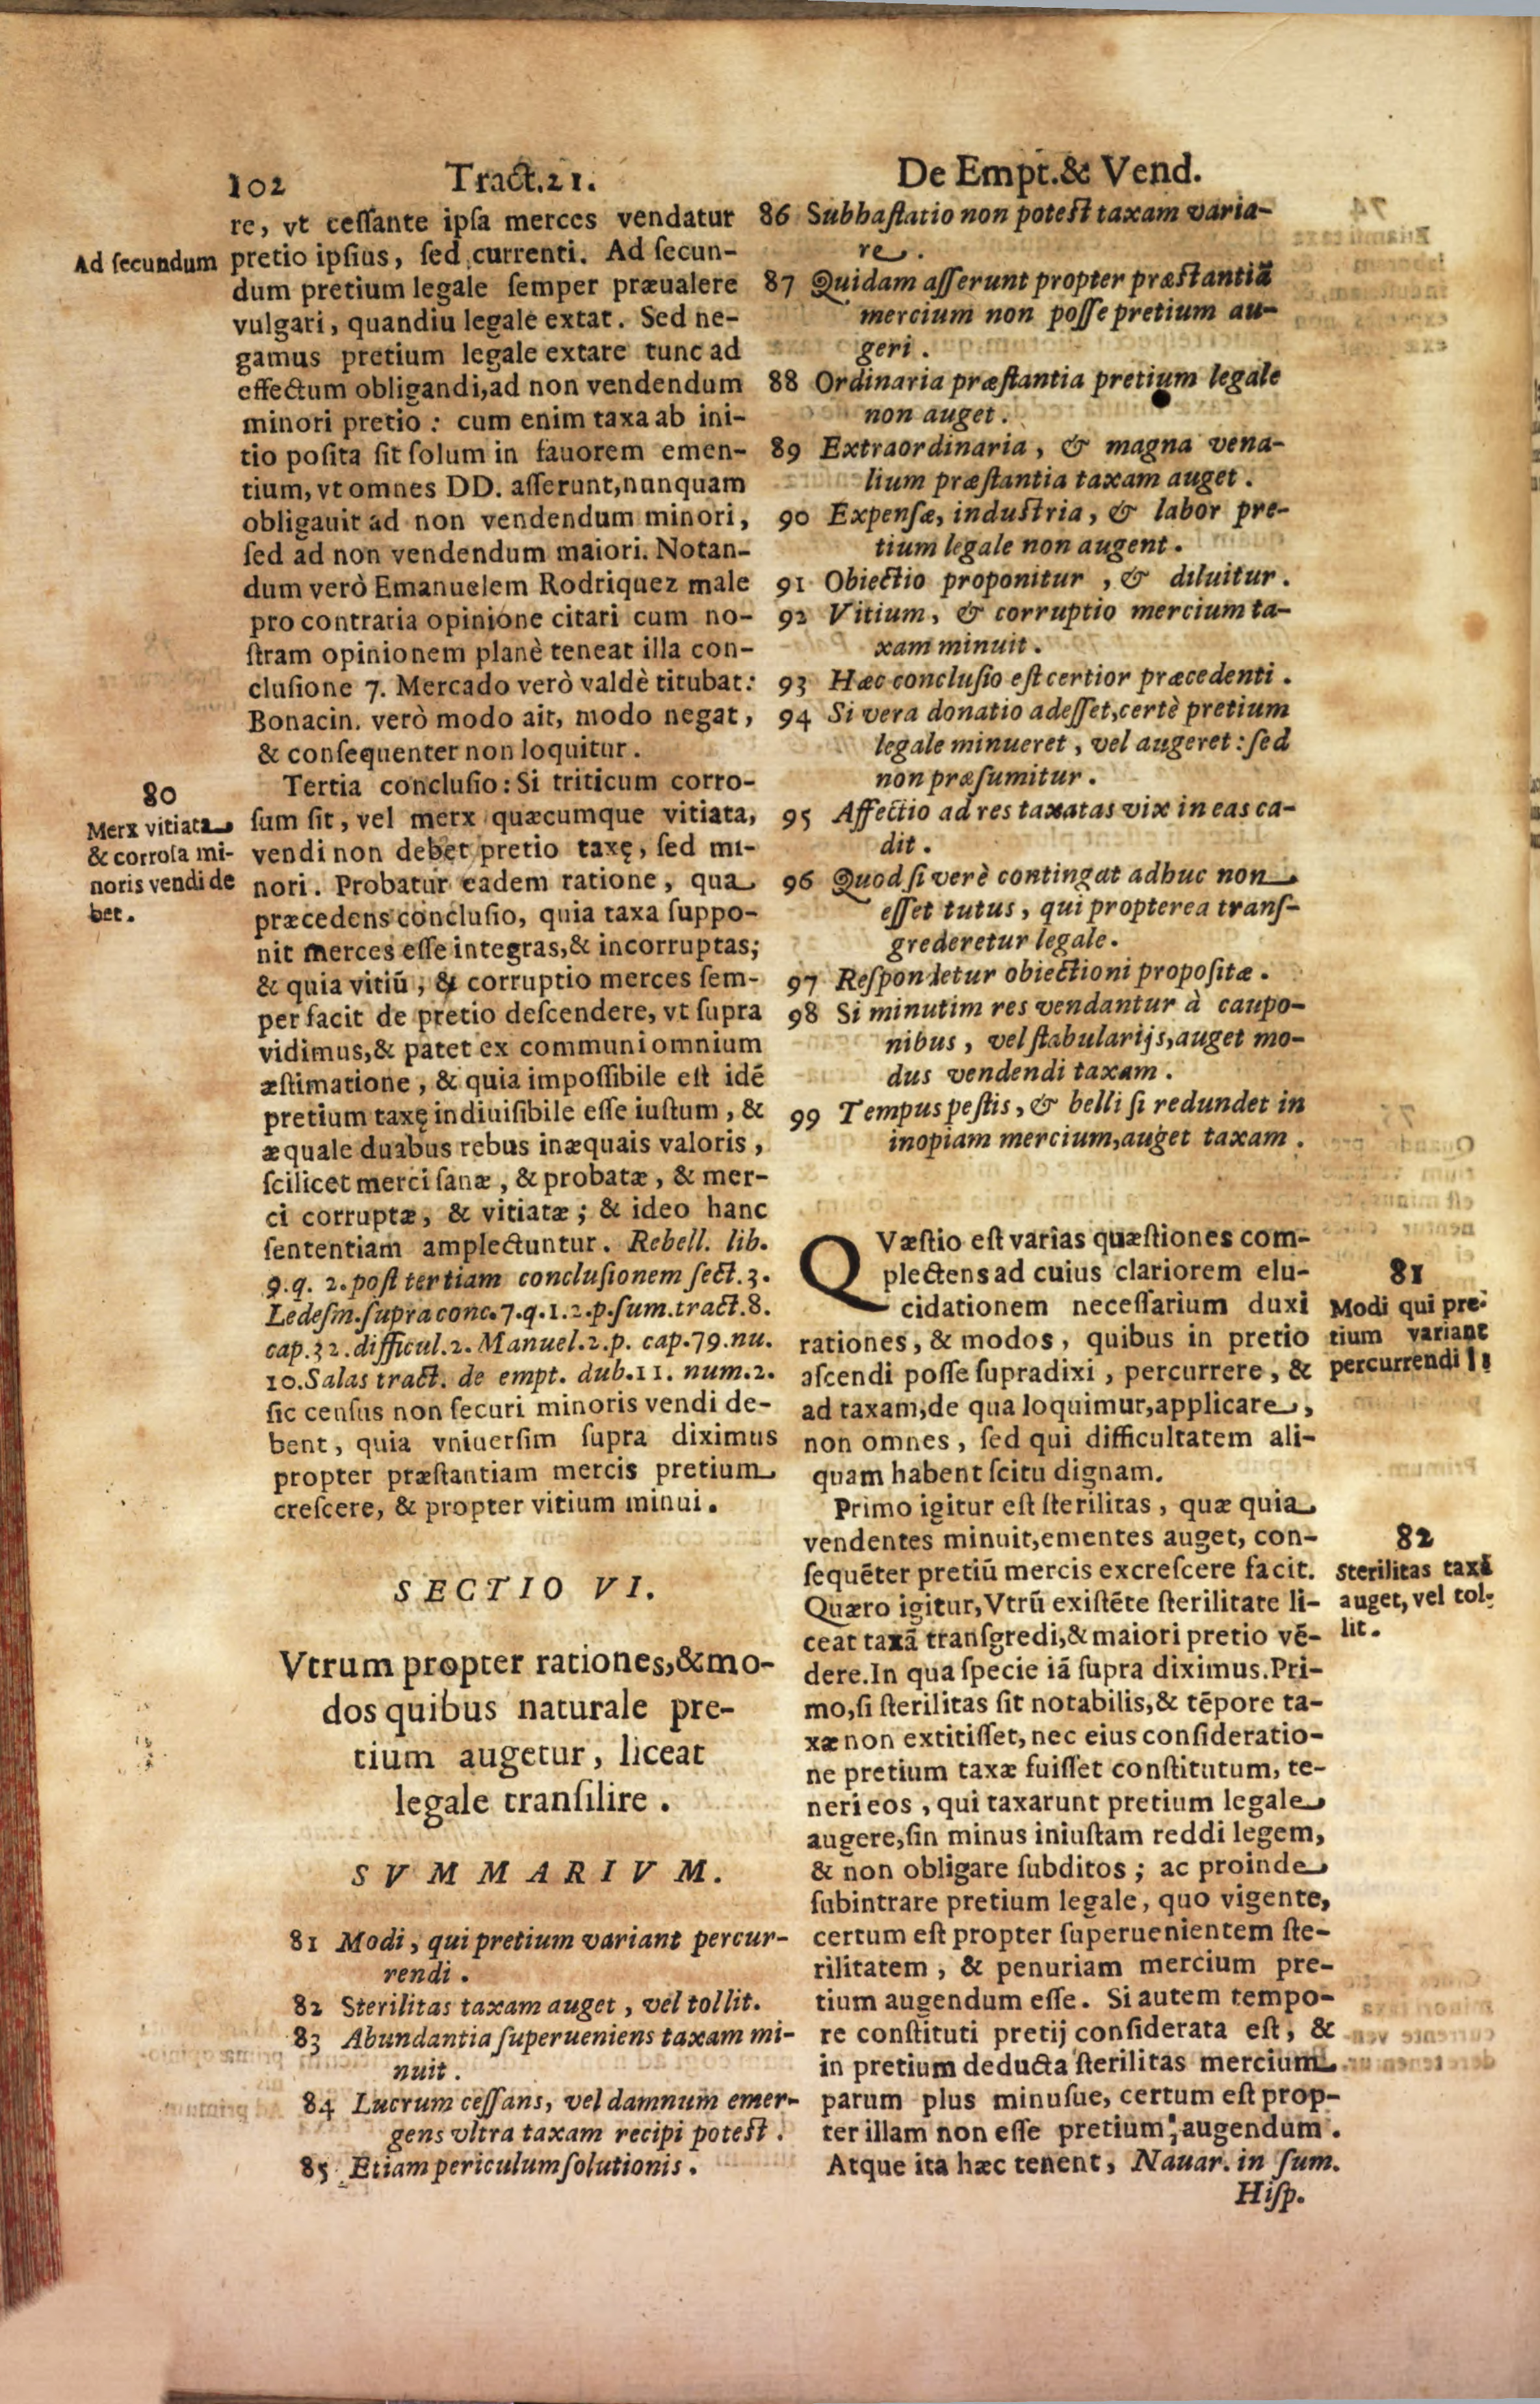 102
Tract.21.
De Empt.& Vend.
re, vt ceſſante ipſa merces vendatur
Ad ſecundum
pretio ipſius, ſed currenti. Ad ſecun-
dum pretium legale ſemper præualere
vulgari, quandiu legale extat. Sed ne-
gamus pretium legale extare tunc ad
effectum obligandi,ad non vendendum
minori pretio: cum enim taxa ab ini-
tio poſita ſit ſolum in fauorem emen-
tium, vt omnes DD. aſſerunt,nunquam
obligauit ad non vendendum minori,
ſed ad non vendendum maiori. Notan-
dum verò Emanuelem Rodriquez male
pro contraria opinione citari cum no-
ſtram opinionem planè teneat illa con-
cluſione 7. Mercado verò valdè titubat:
Bonacin. verò modo ait, modo negat,
& conſequenter non loquitur.
80
Merx vitiata
& corroſa mi-
noris vendi de
bet.
Tertia concluſio: Si triticum corro-
ſum ſit, vel merx quæcumque vitiata,
vendi non debet pretio taxę, ſed mi-
nori. Probatur eadem ratione, qua
præcedens concluſio, quia taxa ſuppo-
nit merces eſſe integras,& incorruptas;
& quia vitiū, & corruptio merces ſem-
per facit de pretio deſcendere, vt ſupra
vidimus,& patet ex communi omnium
æſtimatione, & quia impoſſibile eſt idē
pretium taxę indiuiſibile eſſe iuſtum, &
æquale duabus rebus inæquais valoris,
ſcilicet merci ſanæ, & probatæ, & mer-
ci corruptæ, & vitiatæ; & ideo hanc
ſententiam amplectuntur. Rebell. lib.
9.q. 2.poſt tertiam concluſionem ſect.3.
Ledeſm.ſupra conc.7.q.1.2.p.ſum.tract.8.
cap.32.difficul.2. Manuel.2.p. cap.79.nu.
10.Salas tract. de empt. dub.11. num.2.
ſic cenſus non ſecuri minoris vendi de-
bent, quia vniuerſim ſupra diximus
propter præſtantiam mercis pretium
creſcere, & propter vitium minui.
SECTIO VI.
Vtrum propter rationes,& mo-
dos quibus naturale pre-
tium augetur, liceat
legale tranſilire.
SVMMARIVM.
81 Modi, qui pretium variant percur-
rendi.
82 Sterilitas taxam auget, vel tollit.
83 Abundantia ſuperueniens taxam mi-
nuit.
84 Lucrum ceſſans, vel damnum emer-
gens vltra taxam recipi poteſt.
85 Etiam periculum ſolutionis.
86 Subhaſtatio non poteſt taxam varia-
re.
87 Quidam aſſerunt propter præſtantiā
mercium non poſſe pretium au-
geri.
88 Ordinaria præſtantia pretium legale
non auget.
89 Extraordinaria, & magna vena-
lium præſtantia taxam auget.
90 Expenſæ, induſtria, & labor pre-
tium legale non augent.
91 Obiectio proponitur, & diluitur.
92 Vitium, & corruptio mercium ta-
xam minuit.
93 Hæc concluſio eſt certior præcedenti.
94 Si vera donatio adeſſet,certè pretium
legale minueret, vel augeret: ſed
non præſumitur.
95 Affectio ad res taxatas vix in eas ca-
dit.
96 Quod ſi verè contingat adhuc non
eſſet tutus, qui propterea tranſ-
grederetur legale.
97 Reſpondetur obiectioni propoſitæ.
98 Si minutim res vendantur à caupo-
nibus, vel ſtabularijs,auget mo-
dus vendendi taxam.
99 Tempus peſtis, & belli ſi redundet in
inopiam mercium,auget taxam.
QVæſtio eſt varias quæſtiones com-
plectens ad cuius clariorem elu-
cidationem neceſſarium duxi
rationes, & modos, quibus in pretio
aſcendi poſſe ſupradixi, percurrere, &
ad taxam,de qua loquimur,applicare,
non omnes, ſed qui difficultatem ali-
quam habent ſcitu dignam.
81
Modi qui pre-
tium variant
percurrendi
Primo igitur eſt ſterilitas, quæ quia
vendentes minuit,ementes auget, con-
ſequēter pretiū mercis excreſcere facit.
Quæro igitur,Vtrū exiſtēte ſterilitate li-
ceat taxā tranſgredi,& maiori pretio vē-
dere.In qua ſpecie iā ſupra diximus.Pri-
mo,ſi ſterilitas ſit notabilis,& tēpore ta-
xæ non extitiſſet, nec eius conſideratio-
ne pretium taxæ fuiſſet conſtitutum, te-
neri eos, qui taxarunt pretium legale
augere,ſin minus iniuſtam reddi legem,
& non obligare ſubditos; ac proinde
ſubintrare pretium legale, quo vigente,
certum eſt propter ſuperuenientem ſte-
rilitatem, & penuriam mercium pre-
tium augendum eſſe. Si autem tempo-
re conſtituti pretij conſiderata eſt, &
in pretium deducta ſterilitas mercium
parum plus minuſue, certum eſt prop-
ter illam non eſſe pretium, augendum.
Atque ita hæc tenent, Nauar. in ſum.
Hiſp.
82
Sterilitas taxā
auget, vel tol-
lit.